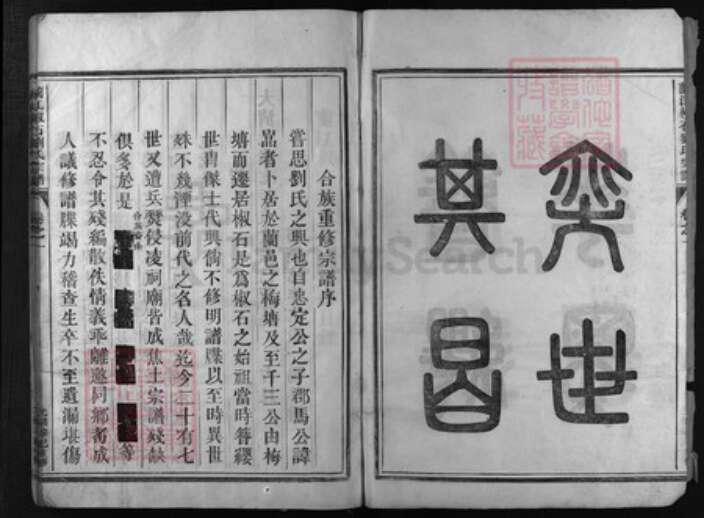 奕世
其昌
合族重修宗譜序
嘗思劉氏之興也自忠定公之子郡馬公諱
嵓者卜居於蘭邑之梅塘及至千三公由梅
塘而遷居椒石是爲椒石之始祖當時簪纓
世冑傑士代興倘不修明譜牒以至時異世
殊不幾湮没前代之名人哉迄今三十有七
世又遭兵燹侵凌祠廟皆成焦土宗譜殘缺
俱多於是
等
不忍令其殘編散佚情義乖離邀同鄉耆成
人議修譜牒竭力稽查生卒不至遺漏堪傷